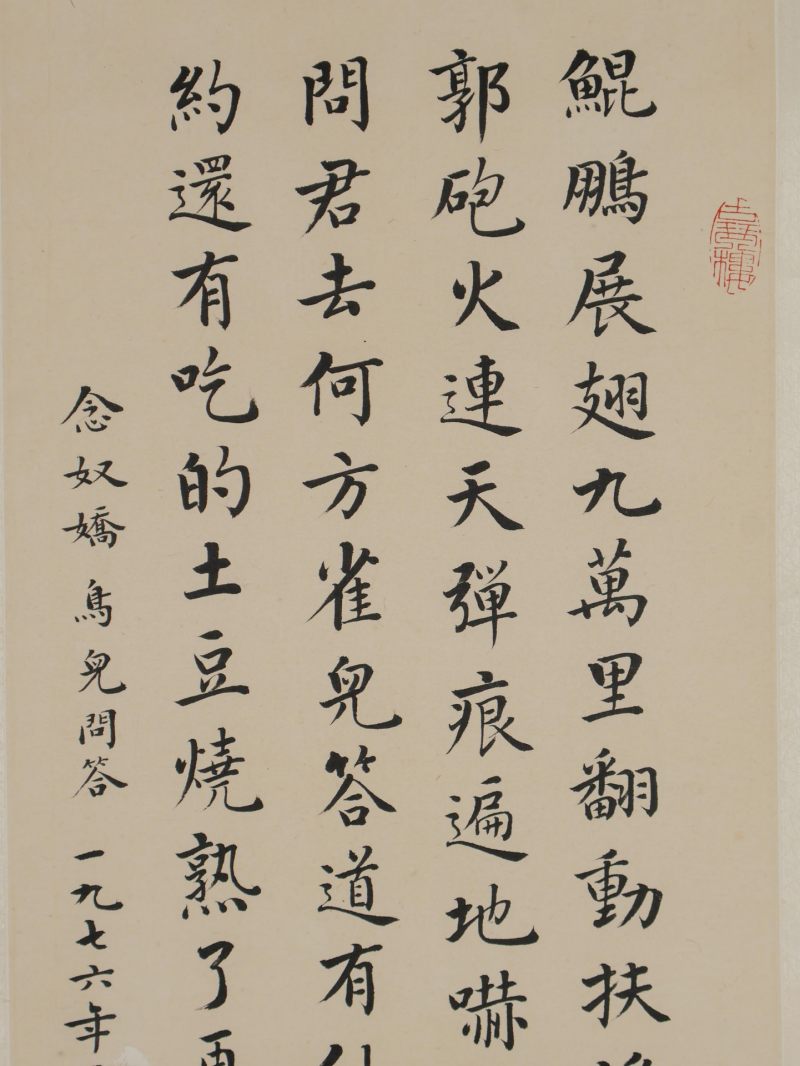 鯤鵬展翅九萬里翻動扶
郭砲火連天彈痕遍地嚇
問君去何方雀兒答道有
約還有吃的土豆燒熟了再
念奴嬌 鳥兒問答 一九七六年